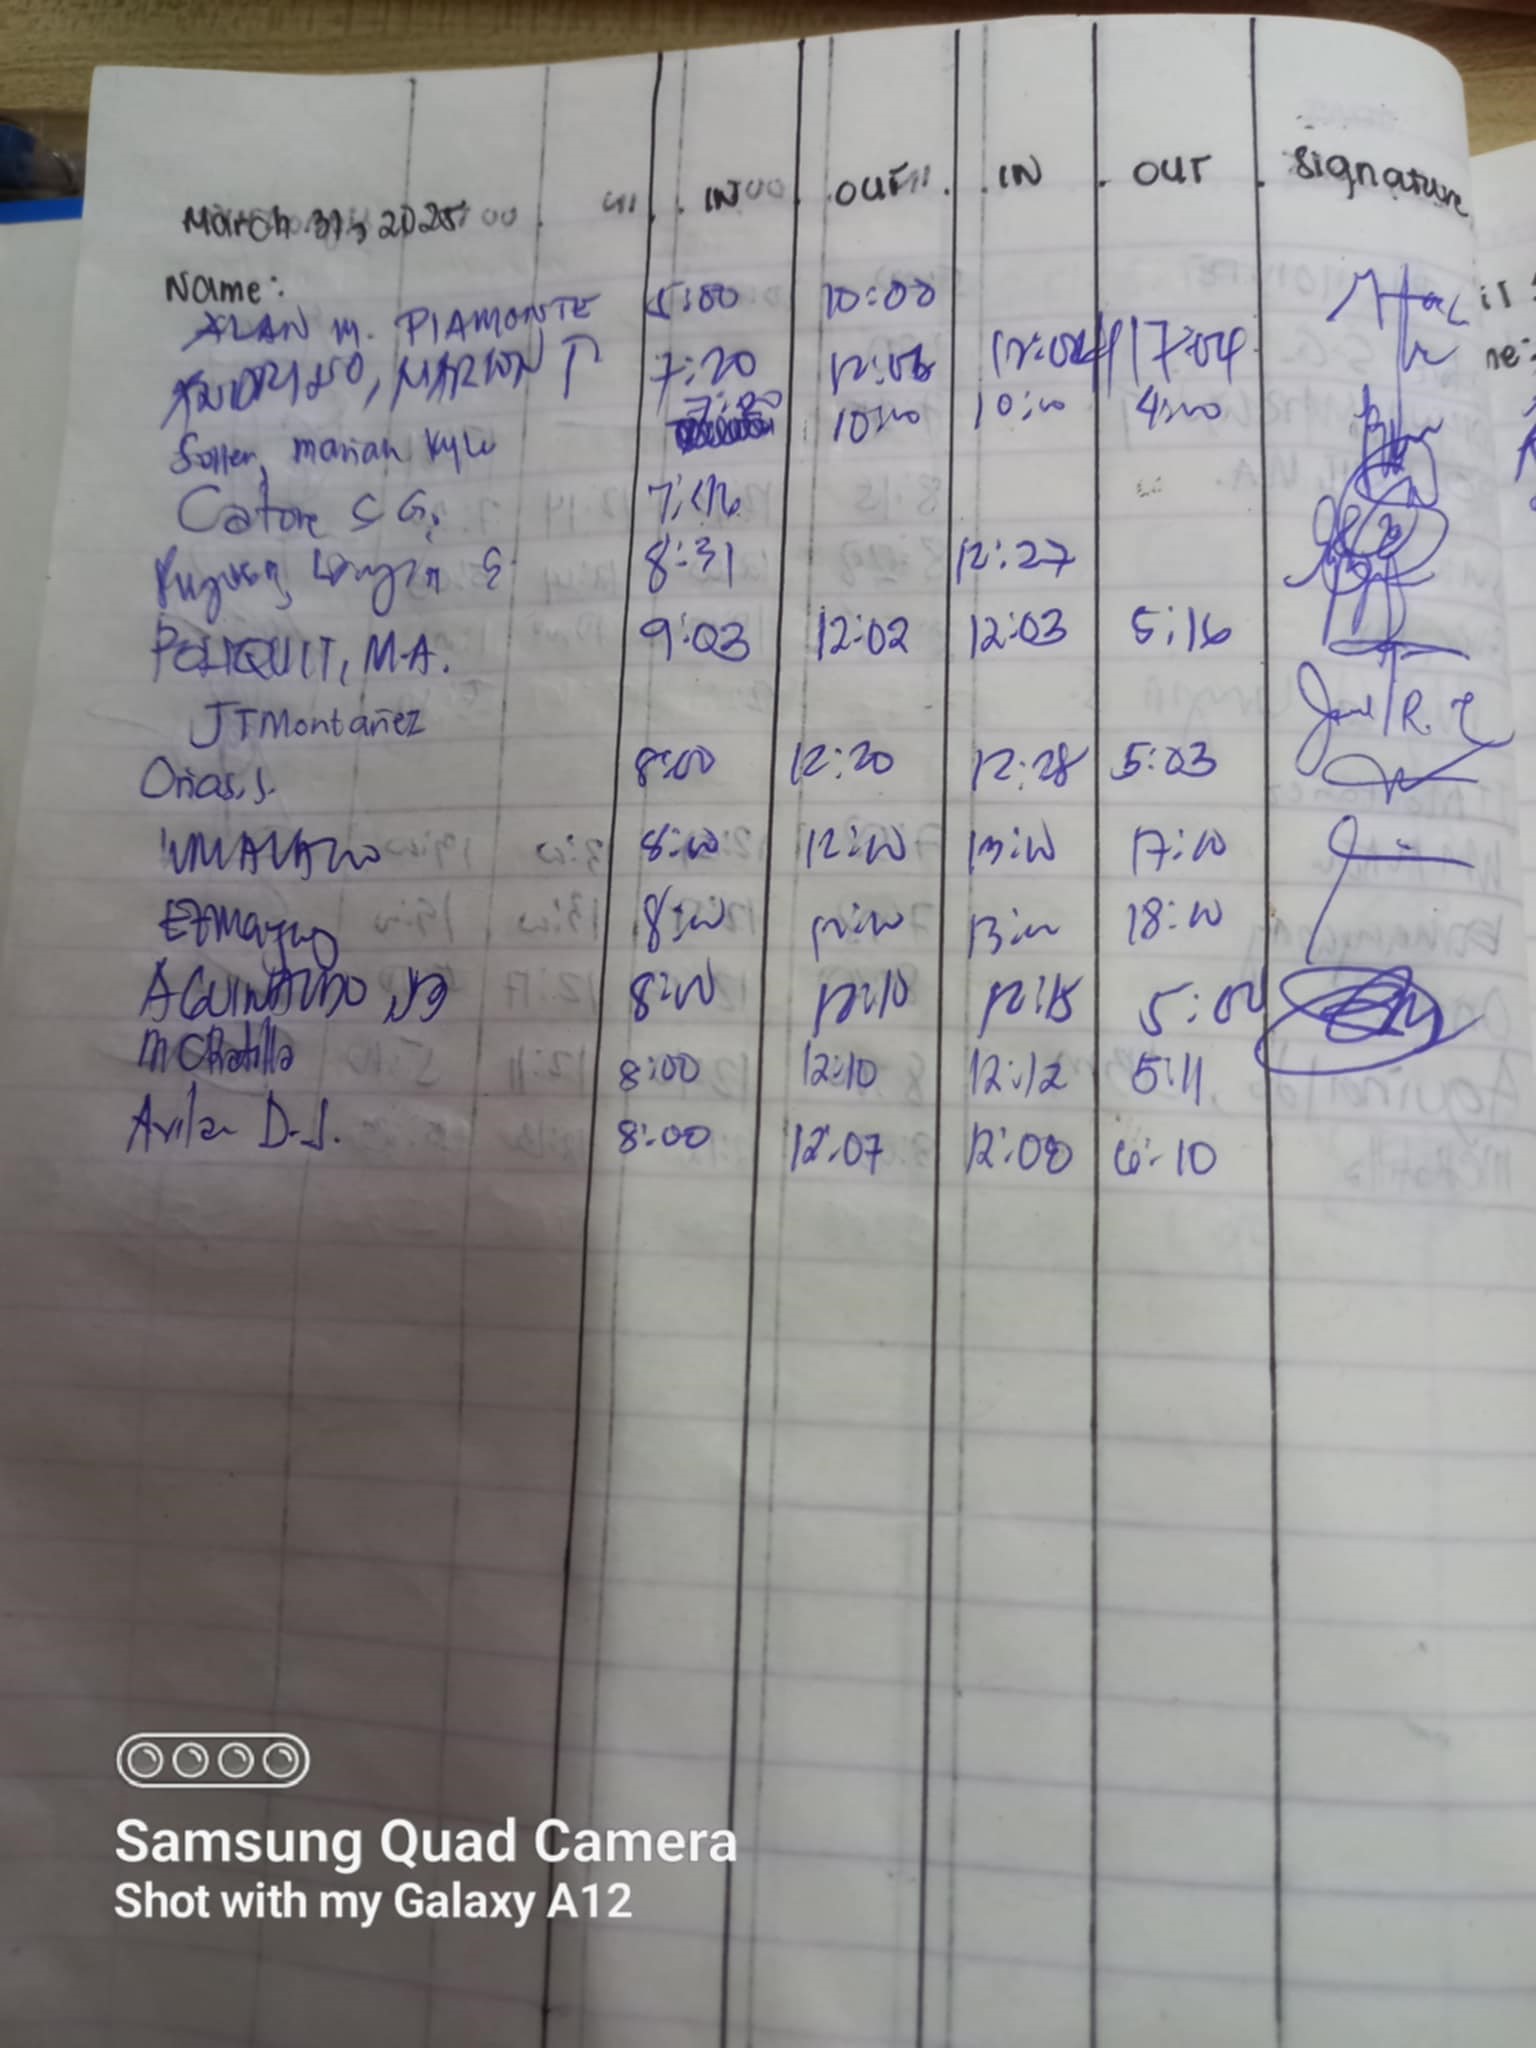 March 31, 2025 IN OUT IN OUT Signature
Name:
ALAN M. PIAMONTE 5:00 10:00
MARION P 7:20 12:06 12:04 17:04
Soller, Mariah Kyle 7:00 10:00 10:00 4:00
Catore S G. 7:46
8:31 12:27
POLIQUIT, M.A. 9:03 12:02 12:03 5:16
JTMontañez
Oñas, J. 8:00 12:20 12:28 5:03
8:00 12:00 13:00 17:00
8:00 12:00 13:00 18:00
AGUINALDO, JB 8:00 12:10 12:15 5:00
MCRatilla 8:00 12:10 12:12 5:11
Avila D.J. 8:00 12:07 12:08 6:10
Samsung Quad Camera
Shot with my Galaxy A12